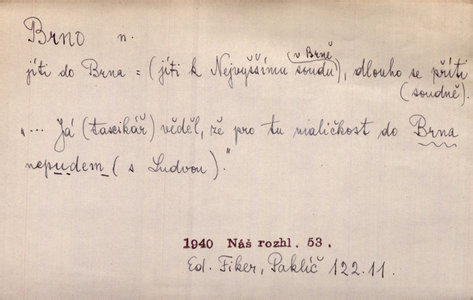 Brno n.
jíti do Brna = (jíti k Nejvyššímu soudu (v Brně)), dlouho se příti
(soudně).
"... Já (taxikář) věděl, že pro tu maličkost do Brna
nepudem (s Ludvou)."
1940 Náš rozhl. 53.
Ed. Fiker, Paklíč 122.11.